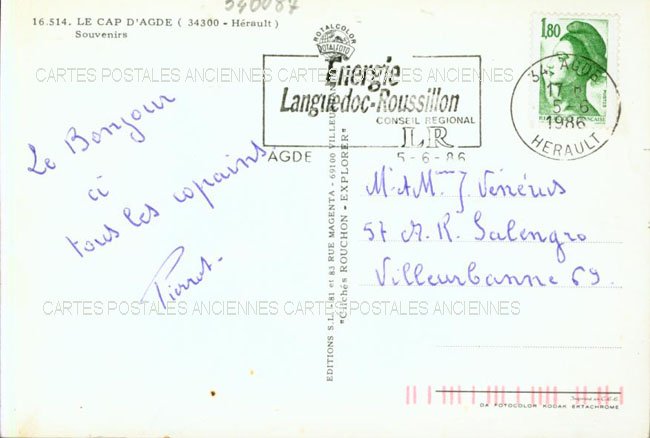 340087
16.514. LE CAP D'AGDE ( 34300 - Hérault )
Souvenirs
ROTALCOLOR
ROTALFOTO
1,80
Energie
Languedoc-Roussillon
CONSEIL REGIONAL
LR
AGDE 5-6-86
34 AGDE
17 H
5-6
1986
HERAULT
CARTES POSTALES ANCIENNES CARTES POSTALES ANCIENNES
Le Bonjour
à
tous les copains
Pierrot.
M et Mme J. Vénérus
57 A. R. Salengro
Villeurbanne 69.
EDITIONS S.L. - 81 et 83 RUE MAGENTA - 69100 VILLEURBANNE
"Clichés ROUCHON - EXPLORER"
CARTES POSTALES ANCIENNES CARTES POSTALES ANCIENNES
Imprimé en C.E.E.
DA FOTOCOLOR KODAK EKTACHROME